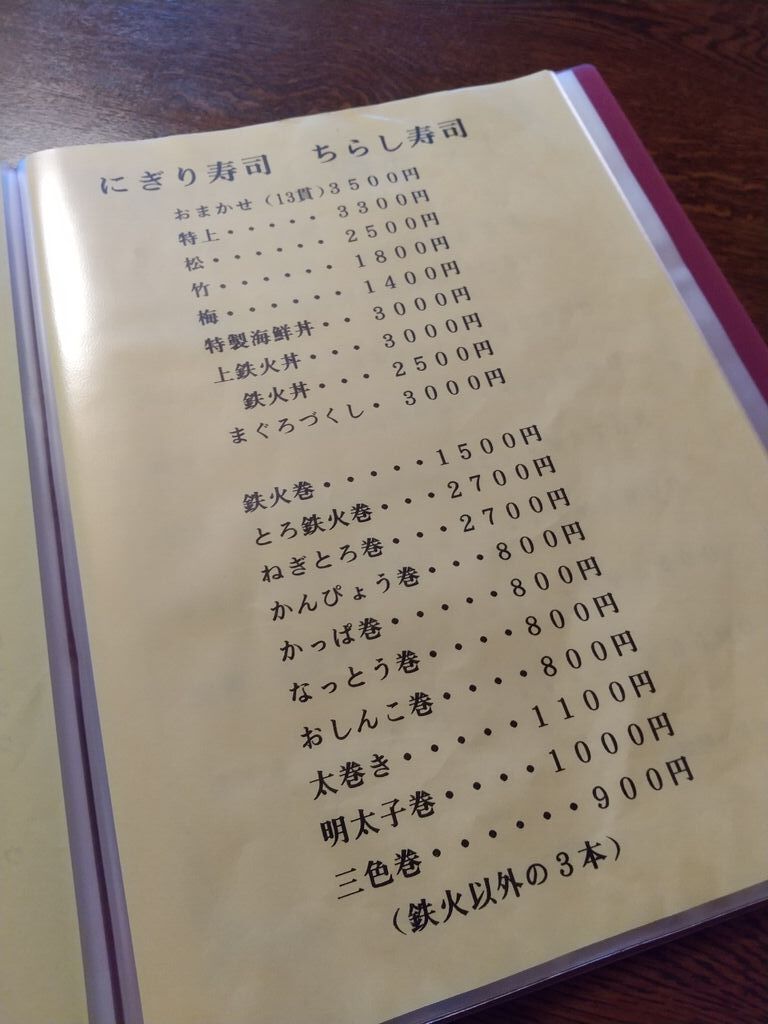 にぎり寿司　ちらし寿司
おまかせ（13貫）3500円
特上・・・・・3300円
松・・・・・・2500円
竹・・・・・・1800円
梅・・・・・・1400円
特製海鮮丼・・3000円
上鉄火丼・・・3000円
鉄火丼・・・2500円
まぐろづくし・3000円
鉄火巻・・・・・1500円
とろ鉄火巻・・・2700円
ねぎとろ巻・・・2700円
かんぴょう巻・・・800円
かっぱ巻・・・・・800円
なっとう巻・・・・800円
おしんこ巻・・・・800円
太巻き・・・・・1100円
明太子巻・・・・1000円
三色巻・・・・・・900円
（鉄火以外の3本）